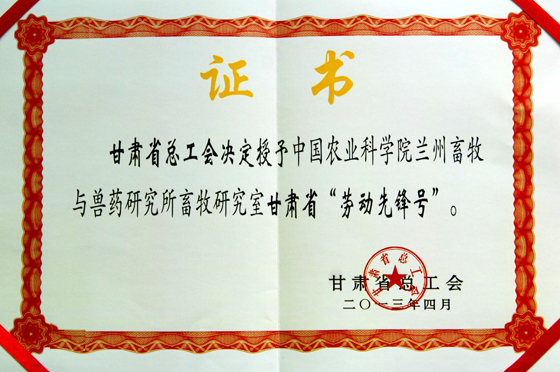 证书
甘肃省总工会决定授予中国农业科学院兰州畜牧
与兽药研究所畜牧研究室甘肃省“劳动先锋号”。
甘肃省总工会
甘肃省总工会
二〇一三年四月